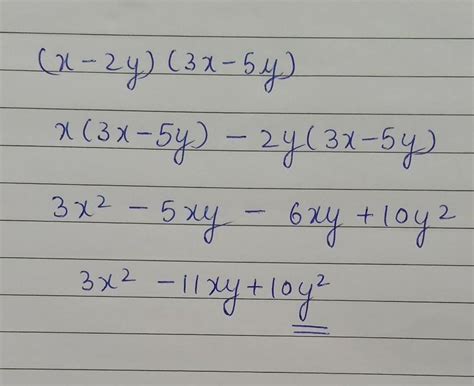 (x-2y) (3x-5y)
x(3x-5y) - 2y(3x-5y)
3x² - 5xy - 6xy + 10y²
3x² - 11xy + 10y²